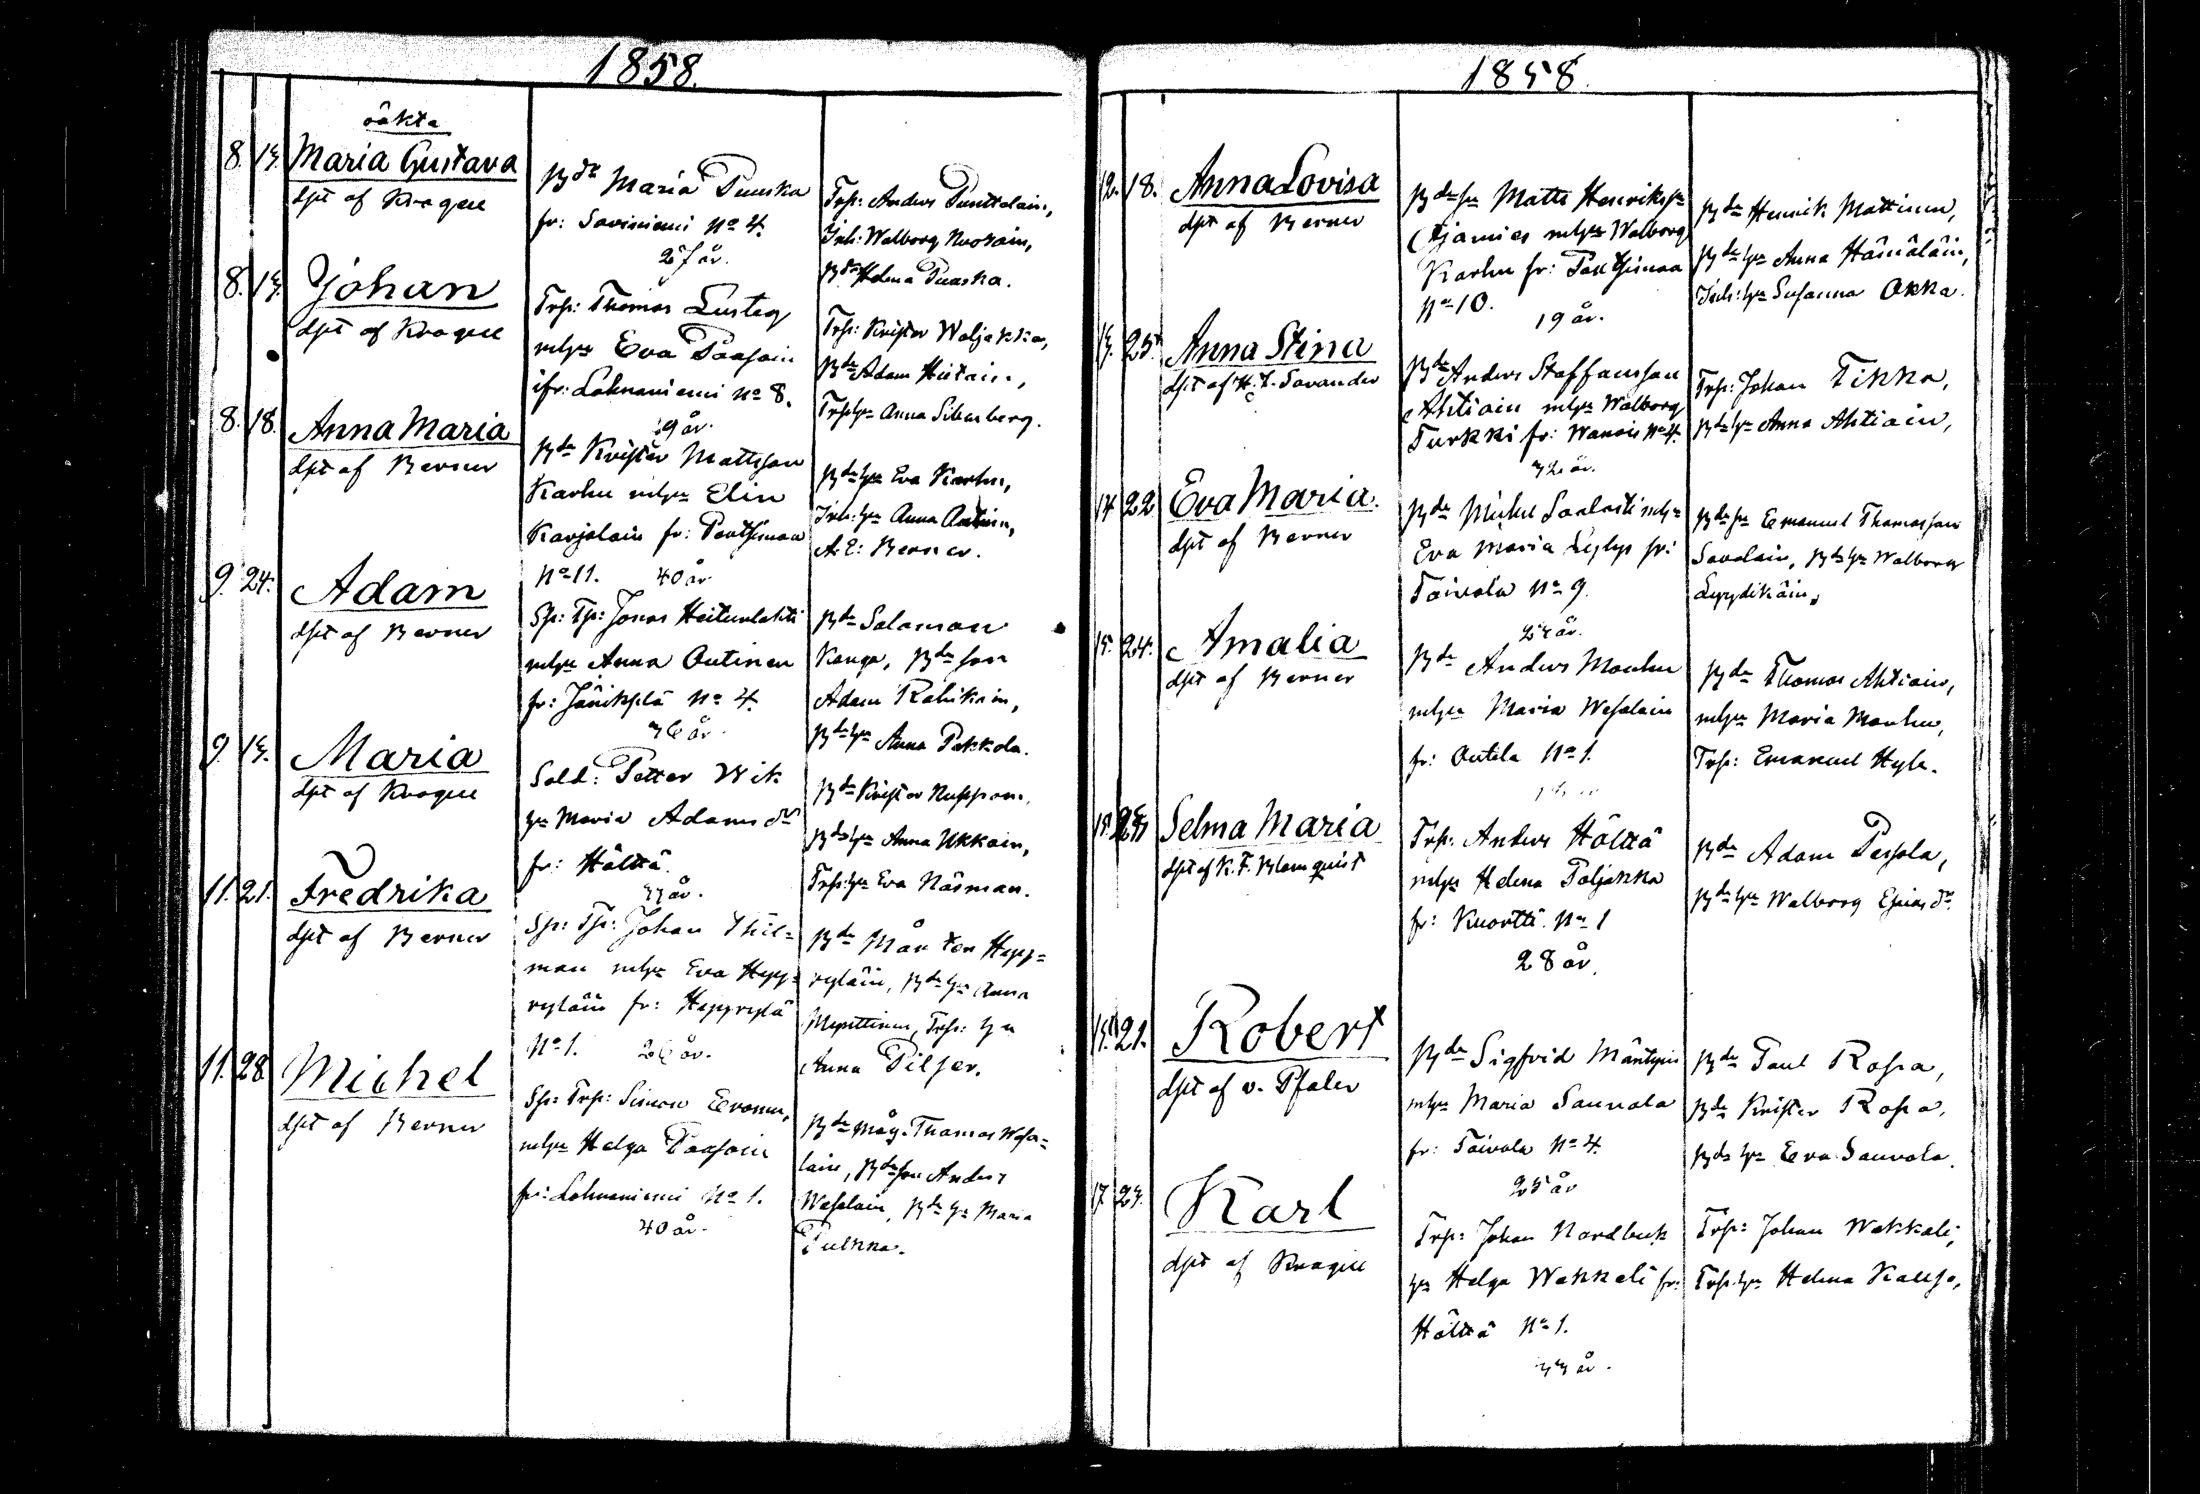 1858.
oäkta
8. 13. Maria Gustava
dpt af Krogell
Bda Maria Puuska
fr: Saviniemi No 4.
27 år.
Trp: Anders Punttolain,
Inh: Walborg Nuorain,
Bda Helena Puuska.
8. 13. Johan
dpt af Krogell
Trp: Thomas Lusteg
mhp Eva Paasoin
ifr: Lahnaniemi No 8.
29 år.
Trp: Krister Waljakka,
Bde Adam Hietain,
Trp hu Anna Silberberg.
8. 18. Anna Maria
dpt af Berner
Bde Krister Mattsson
Karhu mhu Elin
Karjalain fr: Pentsimaa
No 11. 40 år
Bde hu Eva Karhu,
Inh: hu Anna Autinen,
A. E: Berner.
9. 24. Adam
dpt af Berner
Sp: Tp: Jonas Heitunlahti
mhu Anna Outinen
fr: Jänikylä No 4.
36 år.
Bde Salomon
Kanga, Bde son
Adam Rahikain,
Bde hu Anna Pekkola.
9. 13. Maria
dpt af Krogell
Sold: Petter Wik
hu Maria Adams dr
fr: Hölttä.
33 år.
Bde Krister Nuppon,
Bde hu Anna Ukkain,
Trp: hu Eva Näsman.
11. 21. Fredrika
dpt af Berner
Sp: Tp: Johan Thil=
man mhu Eva Hepp=
ryläin fr: Heppyrylä
No 1. 26 år.
Bde Mårten Hepp=
ryläin, Bde hu Anna
Myttinen, Trp: hu
Anna Piljer.
11. 28. Michel
dpt af Berner
Sp: Trp: Simon Eronen,
mhu Helga Paasoin
fr: Lahnaniemi No 1.
40 år.
Bde Måg Thomas Wesa=
lain, Bde son Anders
Wesalain, Bde hu Maria
Pulkka.
1858.
12. 18. Anna Lovisa
dpt af Berner
Bde sn Matts Henriksson
Karhu fr: Pentsimaa
No 10. 19 år.
Bde Henrik Mattinen,
Bde hu Anna Hämäläin,
Inh: hu Susanna Okka.
13. 25. Anna Stina
dpt af K. J. Savander
Bde Anders Staffansson
Ahtiain mhu Walborg
Turkki fr: No 4.
32 år.
Trp: Johan Tikka,
Bde hu Anna Ahtiain,
14. 22 Eva Maria.
dpt af Berner
Bde Michel mhu
Eva Maria fr:
Toivola No 9.
Bde sn Emanuel Thomasson
Savolain, Bde hu Walborg
15. 24. Amalia
dpt af Berner
Bde Anders Mouhu
mhu Maria Wesalain
fr: Outila No 1.
Bde Thomas Ahtiain,
mhu Maria Mouhu,
Trp: Emanuel Hyle.
15. Selma Maria
dpt af K. F. Blomquist
Trp: Anders Hölttä
mhu Helena Paljakka
fr: Kuortti No 1
28 år.
Bde Adam Pessola,
Bde hu Walborg Esias dr.
15. 21. Robert
dpt af v. Pfaler
Bde Sigfrid Mäntynen
mhu Maria Sauvala
fr: Toivola No 4.
25 år
Bde Paul Ropa,
Bde Krister Ropa,
Bde hu Eva Sauvola.
17. 23. Karl
dpt af Krogell
Trp: Johan Nordbeck
hu Helga Wakkeli fr:
Hölttä No 1.
33 år.
Trp: Johan Wakkeli,
Trp: hu Helena